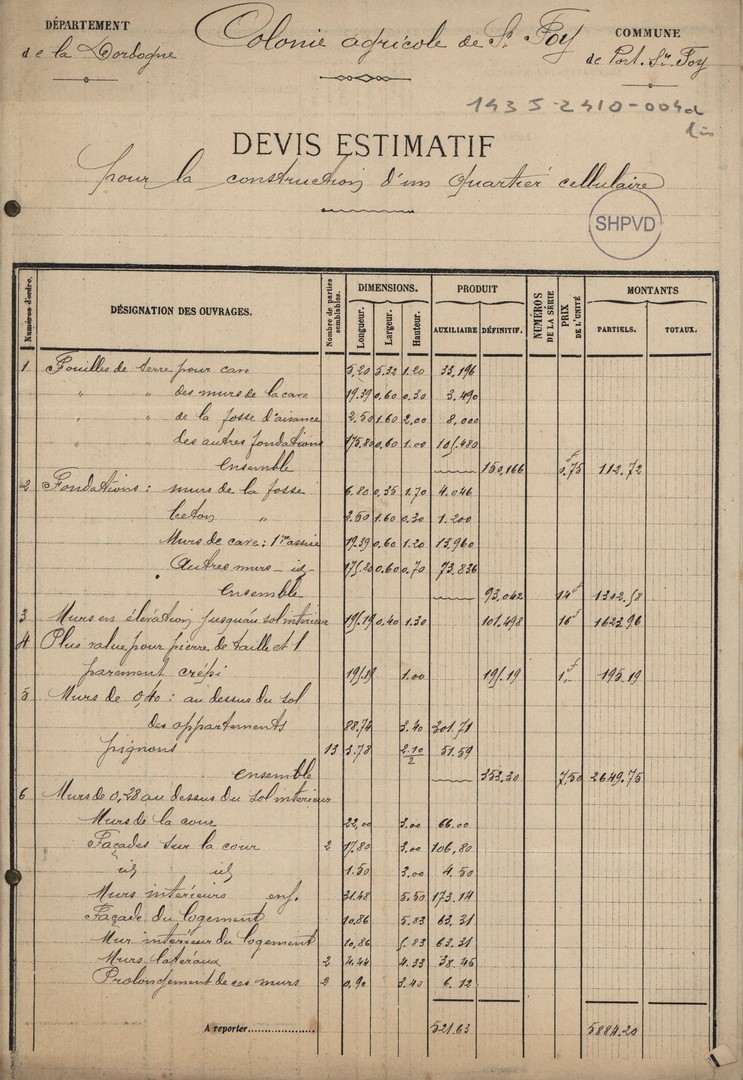 DÉPARTEMENT
de la Dordogne
Colonie agricole de Ste Foy
COMMUNE
de Port-Ste-Foy
143 S-2410-004d
bis
DEVIS ESTIMATIF
pour la construction d'un quartier cellulaire
SHPVD
Numéros d'ordre. DÉSIGNATION DES OUVRAGES. Nombre de parties semblables. DIMENSIONS. Longueur. Largeur. Hauteur. PRODUIT AUXILIAIRE DÉFINITIF. NUMÉROS DE LA SÉRIE PRIX DE L'UNITÉ MONTANTS PARTIELS. TOTAUX.
1 Fouilles de terre pour cave 5,20 5.32 1.20 33,196
" " des murs de la cave 19.39 0.60 0.30 3.490
" " de la fosse d'aisance 2.50 1.60 2,00 8,000
" " des autres fondations 175.80 0.60 1.00 105.480
ensemble 150,166 0f,75 112.72
2 Fondations : murs de la fosse 6.80 0,35 1.70 4.046
beton " 2.50 1.60 0.30 1.200
Murs de cave : 1re assise 19.39 0.60 1.20 13,960
Autres murs - id - 175.20 0.60 0,70 73,836
ensemble 93,042 14f 1302.58
3 Murs en élévation jusqu'au sol intérieur 195.19 0,40 1.30 101,498 16f 1623.96
4 Plus value pour pierre de taille et 1
parement crépi 195.19 1.00 195.19 1f,- 195.19
5 Murs de 0,40 : au dessus du sol
des appartements 88.74 3.40 301.71
pignons 13 3.78 2.10/2 51.59
ensemble 353.30 7,50 2649.75
6 Murs de 0,28 au dessus du sol intérieur
Murs de la cour 22,00 3.00 66.00
Façades sur la cour 2 17.80 3.00 106,80
id id 1.50 3,00 4.50
Murs intérieurs enf. 31.48 5.50 173.14
Façade du logement 10,86 5.83 63.31
Mur intérieur du logement 10,86 5.83 63.31
Murs latéraux 2 4.44 4.33 38.45
Prolongement de ces murs 2 0,90 3.40 6.12
A reporter 521.63 5884.20